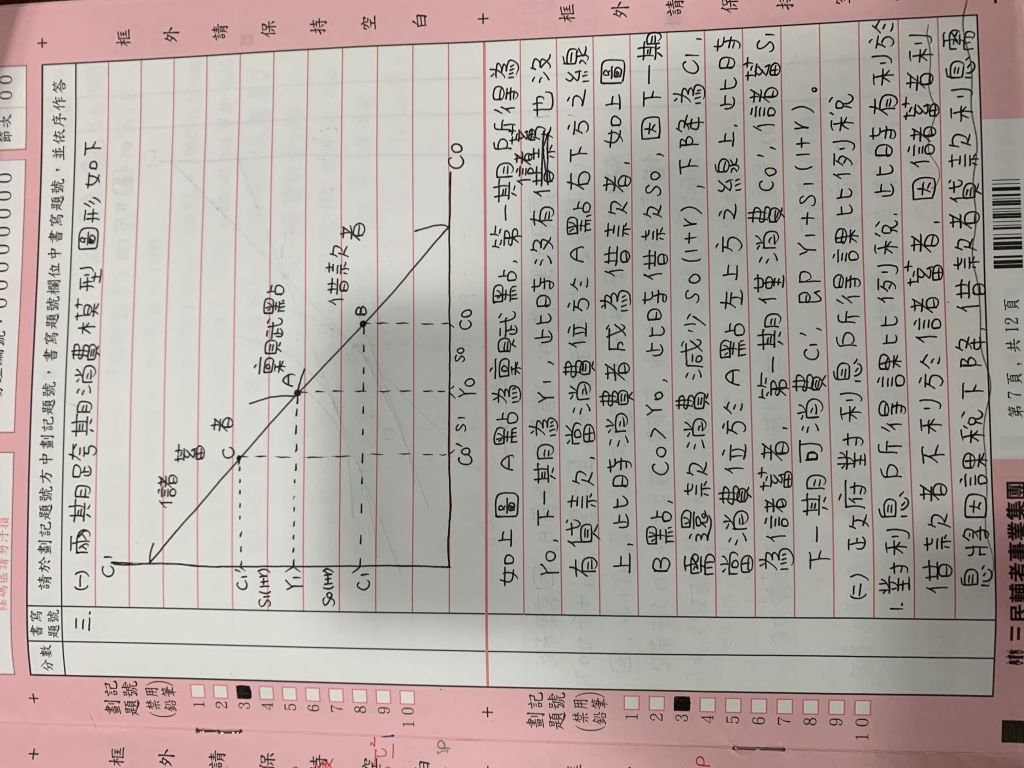 請於劃記題號方中劃記題號,書寫題號欄位中書寫題號,並依序作答
分數
書寫題號
劃記題號
(禁用鉛筆)
1
2
3
4
5
6
7
8
9
10
三.
(一) 兩期跨期消費模型圖形如下
C1
儲蓄者
C
稟賦點
A
借款者
B
C1'
S1(1+r)
Y1
S0(1+r)
C1
C0' S1 Y0 S0 C0
C0
如上圖 A點為稟賦點,第一期所得為
Y0,下一期為Y1,此時沒有儲蓄也沒
有貸款,當消費位於A點右下方之線
上,此時消費者成為借款者,如上圖
B點,C0>Y0,此時借款S0,因下一期
需還款消費減少S0(1+r),下降為C1,
當消費位於A點左上方之線上,此時
為儲蓄者,第一期僅消費C0',儲蓄S1
下一期可消費C1',即Y1+S1(1+r)。
(二) 政府對利息所得課比例稅
1. 對利息所得課比例稅,此時有利於
借款者不利於儲蓄者,因儲蓄者利
息將因課稅下降,借款者貸款利息需
劃記題號
(禁用鉛筆)
1
2
3
4
5
6
7
8
9
10
框外請保持空白
框外請保
三民輔考事業集團
第7頁,共12頁
節次 00